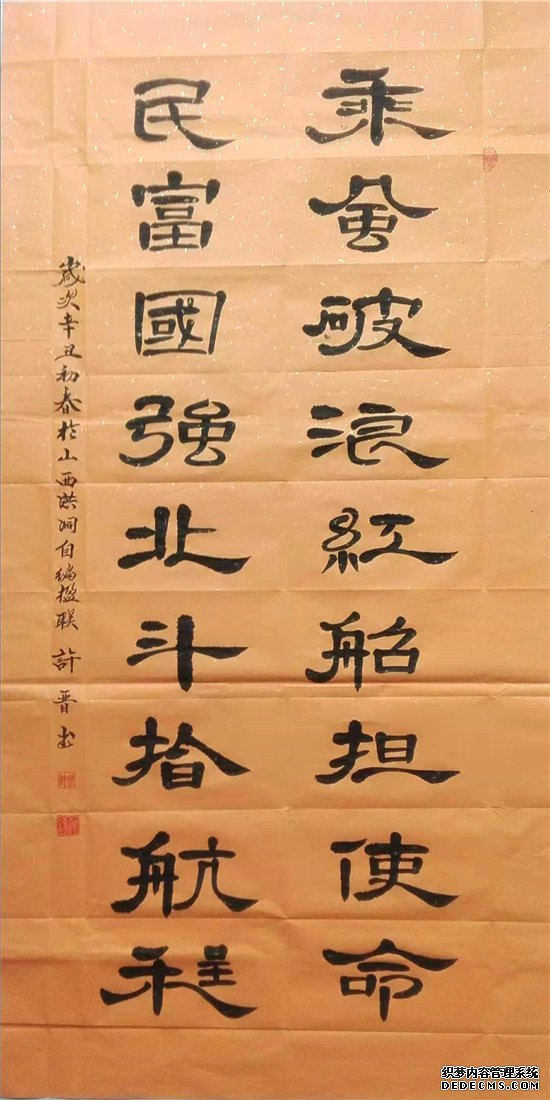 乘風破浪紅船担使命
民富國強北斗指航程
歲次辛丑初春於山西洪洞自编楹联 許晋书
织梦内容管理系统
DEDECMS.COM